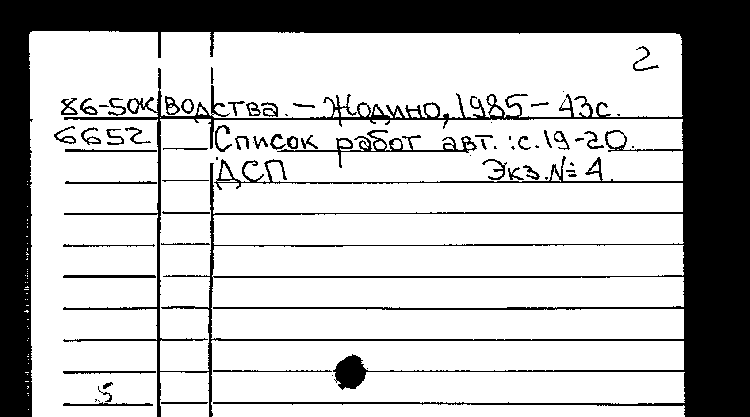 2
86-50К водства. – Жодино, 1985 – 43с.
6652 Список работ авт.: с.19-20.
ДСП Экз.№ 4.
5